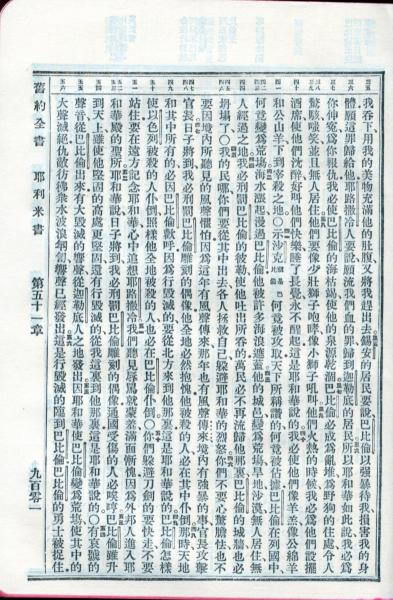 我吞下用我的美物充滿他的肚腹又將我趕出去錫安的居民要說巴比倫以强暴待我損害我的身
體願這罪歸給他耶路撒冷人要說願流我們血的罪歸到迦勒底的居民所以耶和華如此說我必爲
你伸冤爲你報仇我必使巴比倫的海枯竭使他的泉源乾涸巴比倫必成爲亂堆爲野狗的住處令人
驚駭嗤笑並且無人居住他們要像少壯獅子咆哮像小獅子吼叫他們火熱的時候我必爲他們設擺
酒席使他們沈醉好叫他們快樂睡了長覺永不醒起這是耶和華說的我必使他們像羊羔像公綿羊
和公山羊下到宰殺之地○示沙克就是巴比倫何竟被攻取天下所稱讚的何竟被佔據巴比倫在列國中
何竟變爲荒塲海水漲起漫過巴比倫他被許多海浪遮蓋他的城邑變爲荒塲旱地沙漠無人居住無
人經過之地我必刑罰巴比倫的彼勒使他吐出所吞的萬民必不再流歸他那裏巴比倫的城牆也必
坍塌了○我的民哪你們要從其中出去各人拯救自己躱避耶和華的烈怒你們不要心驚膽怯也不
要因境內所聽見的風聲懼怕因爲這年有風聲傳來那年也有風聲傳來境內有强暴的事官長攻擊
官長日子將到我必刑罰巴比倫雕刻的偶像他全地必然抱愧他被殺的人必在其中仆倒那時天地
和其中所有的必因巴比倫歡呼因爲行毀滅的要從北方來到他那裏這是耶和華說的巴比倫怎樣
使以色列被殺的人仆倒照樣他全地被殺的人也必在巴比倫仆倒○你們躱避刀劍的要快走不要
站住要在遠方記念耶和華心中追想耶路撒冷我們聽見辱罵就蒙羞滿面慚愧因爲外邦人進入耶
和華殿的聖所耶和華說日子將到我必刑罰巴比倫雕刻的偶像通國受傷的人必唉哼巴比倫雖升
到天上雖使他堅固的高處更堅固還有行毀滅的從我這裏到他那裏這是耶和華說的○有哀號的
聲音從巴比倫出來有大毀滅的響聲從迦勒底人之地發出因耶和華使巴比倫變爲荒塲使其中的
大聲滅絕仇敵彷彿衆水波浪砰訇響聲已經發出這是行毀滅的臨到巴比倫巴比倫的勇士被捉住
舊約全書 耶利米書 第五十一章 九百零一